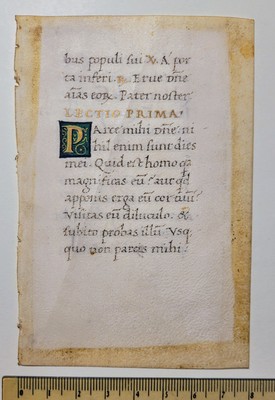 bus populi sui X. A por
ta inferi. R. Erue dñe
aĩas eoꝝ. Pater noster
LECTIO PRIMA.
PArce mihi dñe ni
hil enim sunt dies
mei. Quid est homo qa
magnificas eũ: aut qd
apponis erga eũ cor tuũ:
Visitas eũ diluculo: &
subito probas illũ. Vsq
quo non parcis mihi:
0 1 2 3 4 5 6 7 8